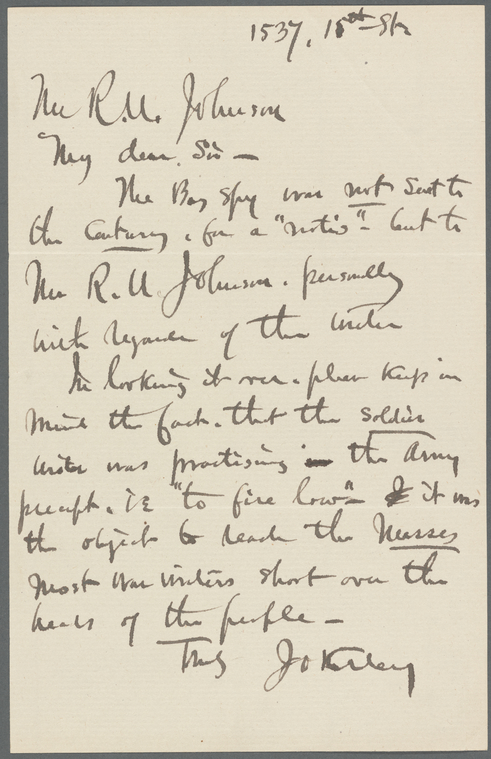 1537, 15th St
Mr R. U. Johnson
My dear Sir —
The Boy Spy was not sent to
the Century, for a "notice" - but to
Mr R. U Johnson. personally
with regards of the writer
In looking it over. please keep in
mind the fact. that the soldier
writer was practising the Army
precept. ie "to fire low" - it was
the object to reach the Masses
most war writers shoot over the
heads of the people —
Truly J O Kerbey